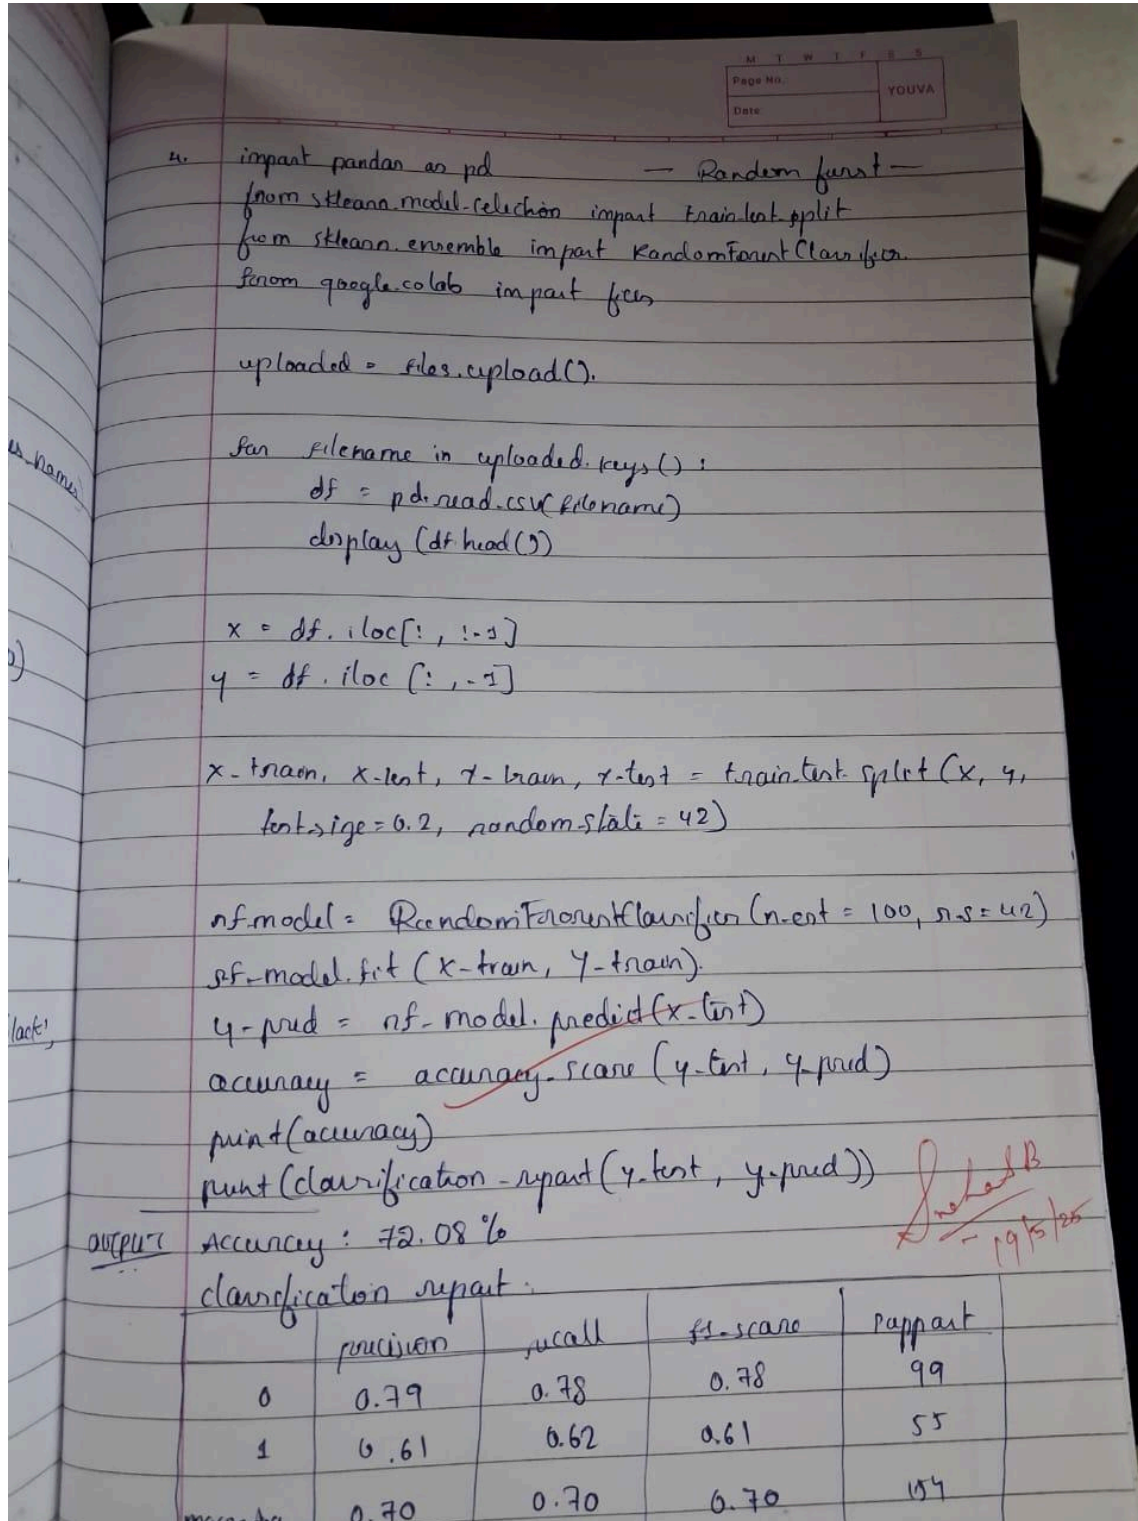 M T W T F S S
Page No.:
YOUVA
Date:
4. import pandas as pd — Random forest —
from sklearn.model-selection import train_test_split
from sklearn.ensemble import RandomForestClassifier
from google.colab import files
uploaded = files.upload().
for filename in uploaded.keys():
df = pd.read_csv(filename)
display (df.head())
x = df.iloc[:, :-1]
y = df.iloc [:,-1]
x-train, x-test, y-train, y-test = train_test_split (x, y,
test_size=0.2, random_state = 42)
rf-model = RandomForestClassifier (n-est = 100, r.s = 42)
rf-model.fit (x-train, y-train).
y-pred = rf-model.predict(x-test)
accuracy = accuracy-score (y-test, y-pred)
print(accuracy)
print (classification-report (y-test, y-pred))
19/5/25
OUTPUT Accuracy : 72.08 %
classification report :
precision recall f1-score support
0 0.79 0.78 0.78 99
1 0.61 0.62 0.61 55
0.70 0.70 0.70 154
s_names
lack',